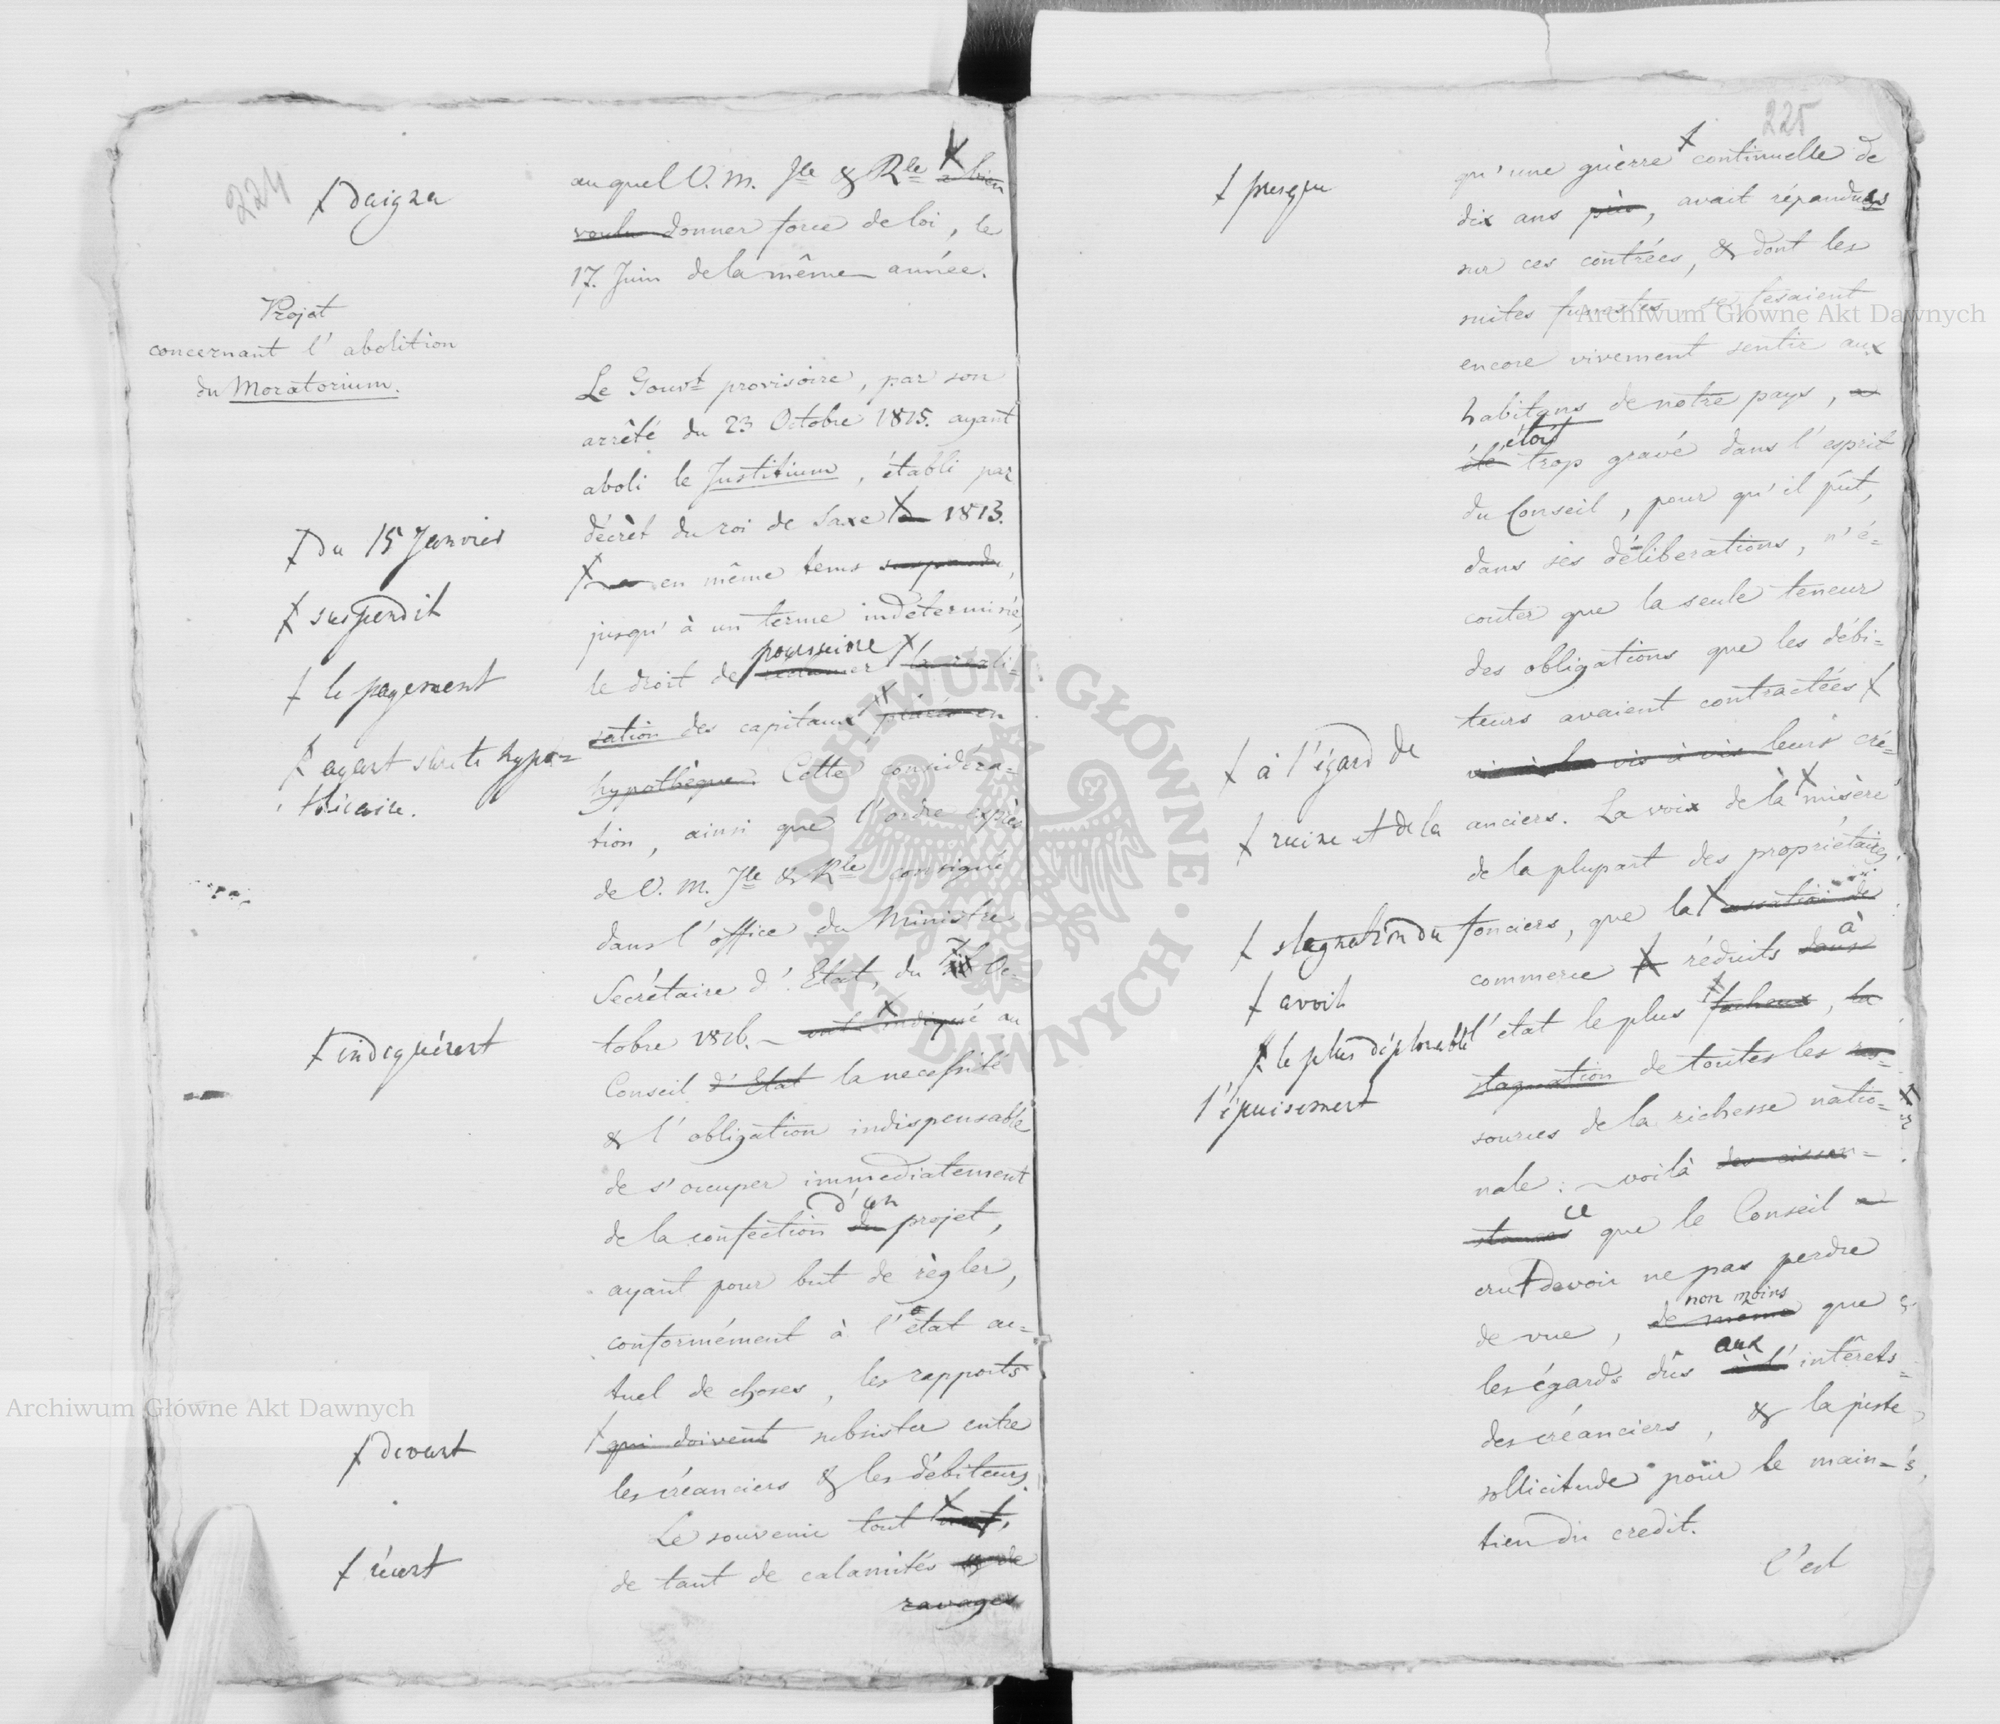 224
† daigna
auquel V. M. Jle & Rle † a bien
voulu donner force de loi, le
17. Juin de la même année.
Projet
concernant l'abolition
du Moratorium.
Le Gouvt provisoire, par son
arrêté du 23 Octobre 1815. ayant
aboli le Justitium, établi par
décrèt du roi de Saxe † 1813.
† Du 15 Janvier
† en même tems suspendu,
† suspendit
jusqu'à un terme indéterminé,
poursuivre
le droit de reclamer † la réali-
† le payement
sation des capitaux † placés en
† ayant sûreté hypo=
thécaire.
hypothèque. Cette considéra=
tion, ainsi que l'ordre exprès
de V. M. Jle & Rle consigné
dans l'office du Ministre
Secrétaire d'Etat, du Oc-
tobre 1816. ont † indiqué au
† indiquèrent
Conseil d'Etat la necessité
& l'obligation indispensable
de s'occuper immediatement
d'un
de la confection du projet,
ayant pour but de règler,
conformément à l'état ac=
tuel de choses, les rapports
† qui doivent subsister entre
† devant
les créanciers & les débiteurs.
Le souvenir tout †
† récent
de tant de calamités
ravages
225
† presque
qu'une guèrre † continuelle de
dix ans près, avait répandues
sur ces contrées, & dont les
suites funestes se fesaient
encore vivement sentir aux
habitans de notre pays, a
étoit
été trop gravé dans l'esprit
du Conseil, pour qu'il pût,
dans ses déliberations, n'é=
couter que la seule teneur
des obligations que les débi=
teurs avaient contractées †
† à l'égard de
vis à vis leurs cré=
† ruine et de la
anciers. La voix de la † misère
de la plupart des propriétaires
† stagnation du
fonciers, que la † cessation de
à
commerce † réduits dans
† avoit
l'etat le plus † facheux, la
† le plus déplorable
stagnation de toutes les res-
l'épuisement
sources de la richesse natio=
nale : voilà des circon=
ce
stances que le Conseil a
cru devoir ne pas perdre
non moins
de vue, de même que
aux
les égards dûs à l'intérêts
des créanciers, & la juste
sollicitude pour le main-
tien du credit.
C'est
Archiwum Główne Akt Dawnych
Archiwum Główne Akt Dawnych
ARCHIWUM GŁÓWNE · AKT DAWNYCH ·